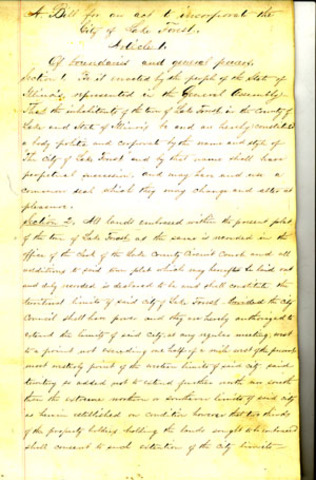 A Bill for an act to incorporate the
City of Lake Forest.
Article 1.
Of boundaries and general powers.
Section 1. Be it enacted by the people of the State of
Illinois, represented in the General Assembly:
That the inhabitants of the town of Lake Forest in the County of
Lake and State of Illinois be and are hereby constituted
a body politic and corporate by the name and style of
The City of Lake Forest and by that name shall have
perpetual succession and may have and use a
common seal which they may change and alter at
pleasure.
Section 2. All lands embraced within the present plat
of the town of Lake Forest, as the same is recorded in the
office of the Clerk of the Lake County Circuit Court and all
additions to said town plat which may hereafter be laid out
and duly recorded is declared to be and shall constitute the
territorial limits of said city of Lake Forest. Provided the City
Council shall have power and they are hereby authorized to
extend the limits of said city, at any regular meeting, west
to a point not exceeding one half of a mile west of the present
most westerly point of the western limits of said city said
territory so added not to extend further north or south
than the extreme northern or southern limits of said city
as herein established on condition however that two thirds
of the property holders holding the lands sought to be embraced
shall consent to such extention of the city limits